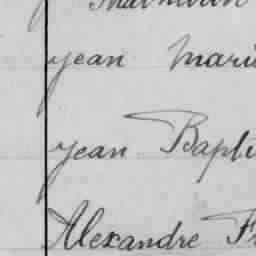 Jean Mari
Jean Bapti
Alexandre Fr